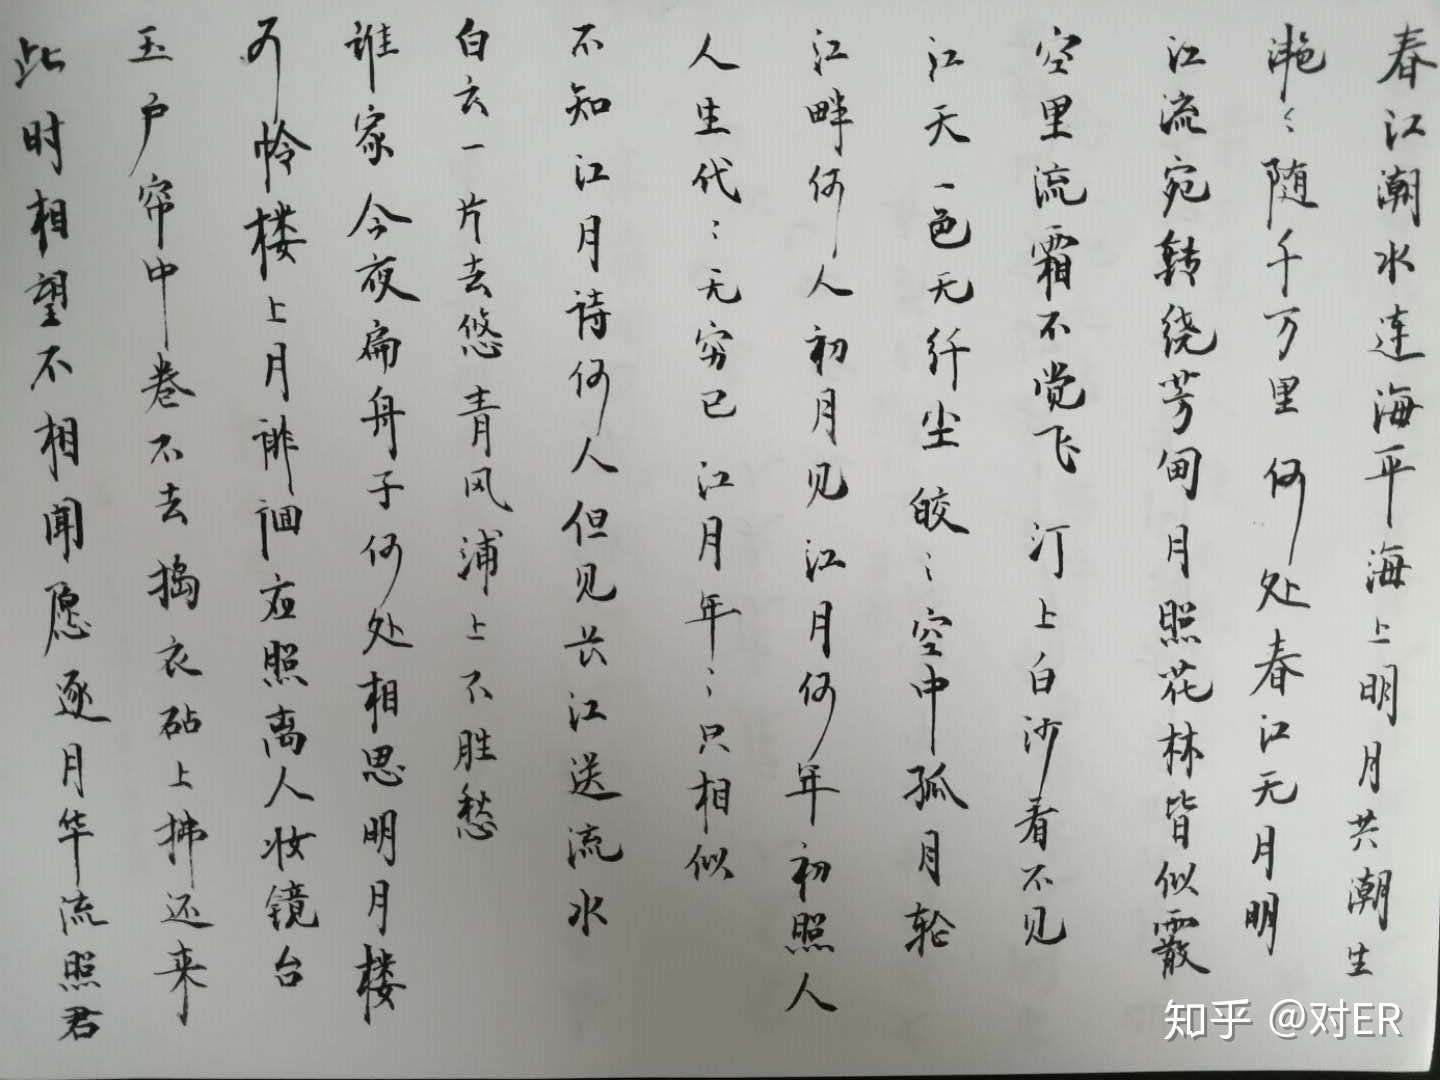 春江潮水连海平海上明月共潮生
滟〻随千万里何处春江无月明
江流宛转绕芳甸月照花林皆似霰
空里流霜不觉飞汀上白沙看不见
江天一色无纤尘皎〻空中孤月轮
江畔何人初月见江月何年初照人
人生代〻无穷已江月年〻只相似
不知江月诗何人但见长江送流水
白云一片去悠青风浦上不胜愁
谁家今夜扁舟子何处相思明月楼
可怜楼上月徘徊应照离人妆镜台
玉户帘中卷不去捣衣砧上拂还来
此时相望不相闻愿逐月华流照君
知乎 @对ER